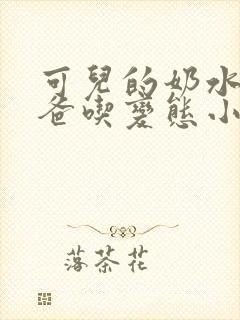 可兒的奶水
爸喫變態小
落茶花